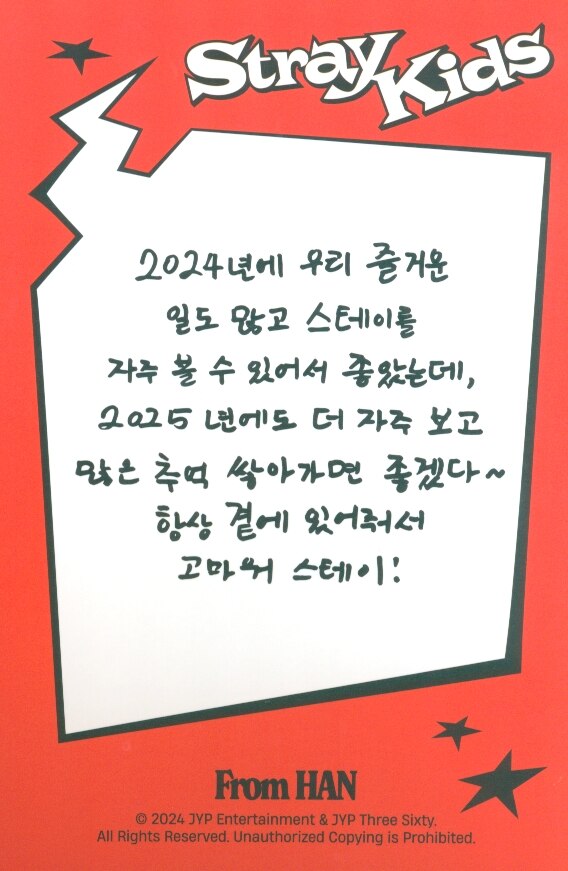 Stray Kids
2024년에 우리 즐거운
일도 많고 스테이를
자주 볼 수 있어서 좋았는데,
2025년에도 더 자주 보고
많은 추억 쌓아가면 좋겠다~
항상 곁에 있어줘서
고마워 스테이!
From HAN
© 2024 JYP Entertainment & JYP Three Sixty.
All Rights Reserved. Unauthorized Copying is Prohibited.